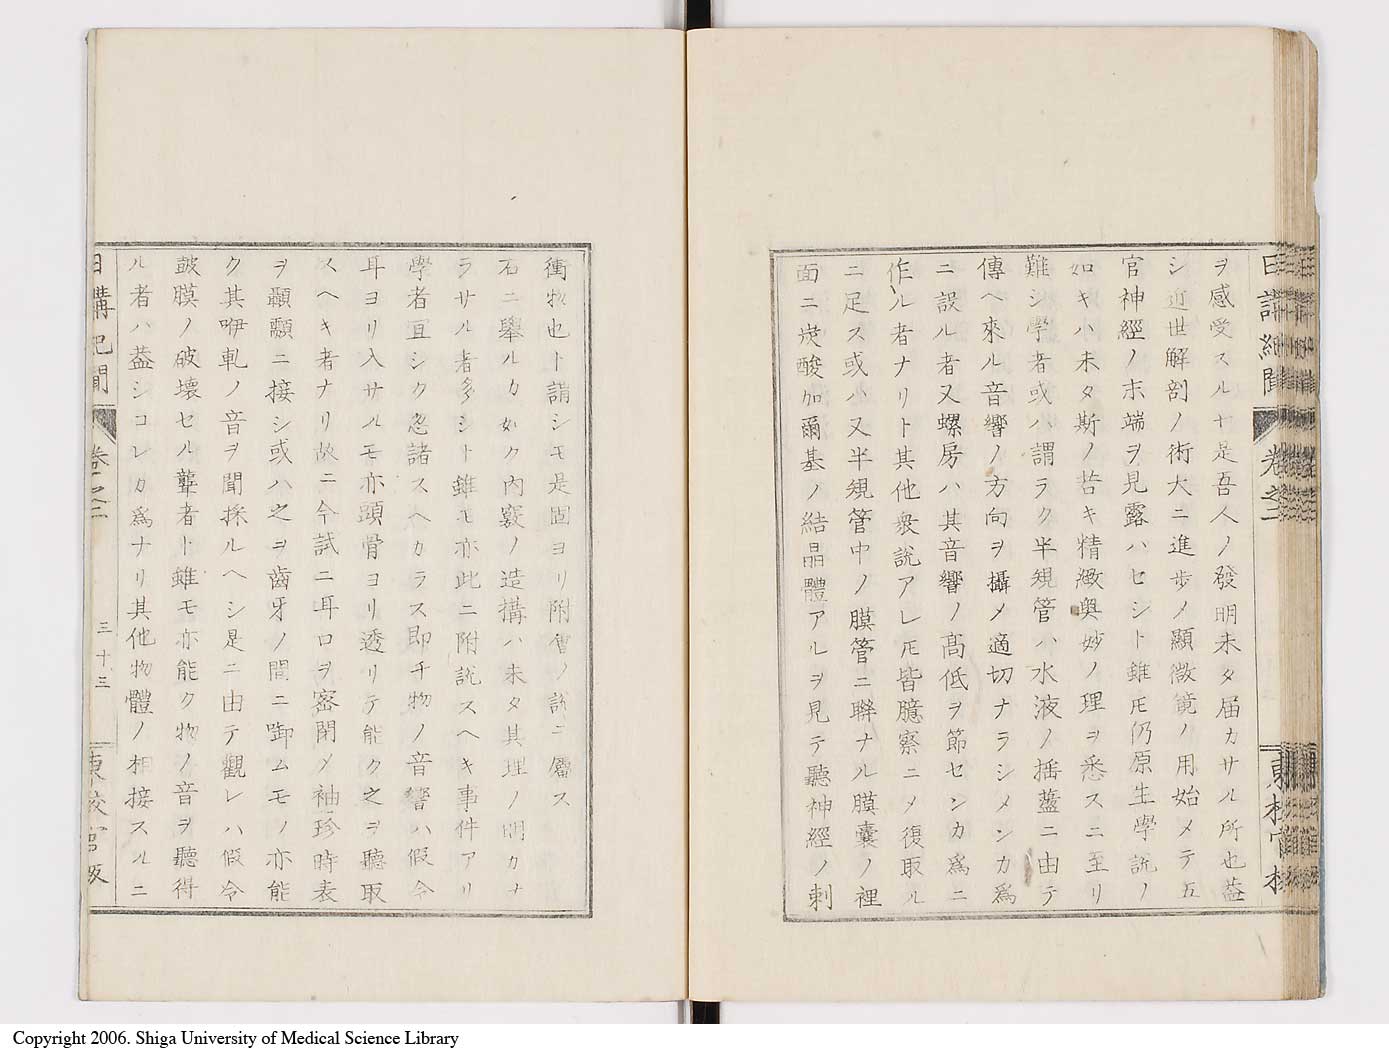 ヲ感受スル十是吾人ノ發明未タ届カサル所也蓋
シ近世解剖ノ術大ニ進步〆顯微鏡ノ用始メテ五
官神經ノ末端ヲ見露ハセシト雖𪜈仍原生學説ノ
如キハ未タ斯ノ若キ精緻奥妙ノ理ヲ悉スニ至リ
難シ學者或ハ謂ラク半規管ハ水液ノ搖蘯ニ由テ
傳ヘ來ル音響ノ方向ヲ攝〆適切ナラシメンカ爲
ニ設ル者又螺房ハ其音響ノ髙低ヲ節センカ爲ニ
作ル者ナリト其他衆説アレ𪜈皆臆察ニ〆復取ル
ニ足ス或ハ又半規管中ノ膜管ニ聯ナル膜囊ノ裡
面ニ炭酸加爾基ノ結晶體アルヲ見テ聽神經ノ刺
日講紀聞 卷之二
衝物也ト謂シモ是固ヨリ附會ノ説ニ屬ス
右ニ擧ルカ如ク内竅ノ造構ハ未タ其理ノ明カナ
ラサル者多シト雖モ亦此ニ附説スヘキ事件アリ
學者宜シク忽諸スヘカラス即チ物ノ音響ハ假令
耳ヨリ入サルモ亦頭骨ヨリ透リテ能ク之ヲ聽取
スヘキ者ナリ故ニ今試ニ耳口ヲ密閉〆袖珍時表
ヲ顳顬ニ接シ或ハ之ヲ齒牙ノ間ニ啣ムモノ亦能
ク其咿軋ノ音ヲ聞採ルヘシ是ニ由テ觀レハ假令
皷膜ノ破壞セル聾者ト雖モ亦能ク物ノ音ヲ聽得
ル者ハ葢シコレカ爲ナリ其他物體ノ相接スルニ
日講記聞 卷之二 三十三 東校官版
Copyright 2006. Shiga University of Medical Science Library